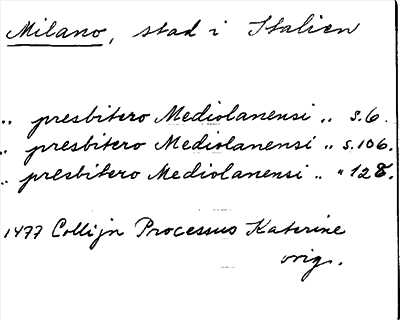 Milano, stad i Italien
.. presbitero Mediolanensi .. s. 6.
.. presbitero Mediolanensi .. s. 106.
.. presbitero Mediolanensi .. " 128.
1477 Collijn Processus Katerine
orig.